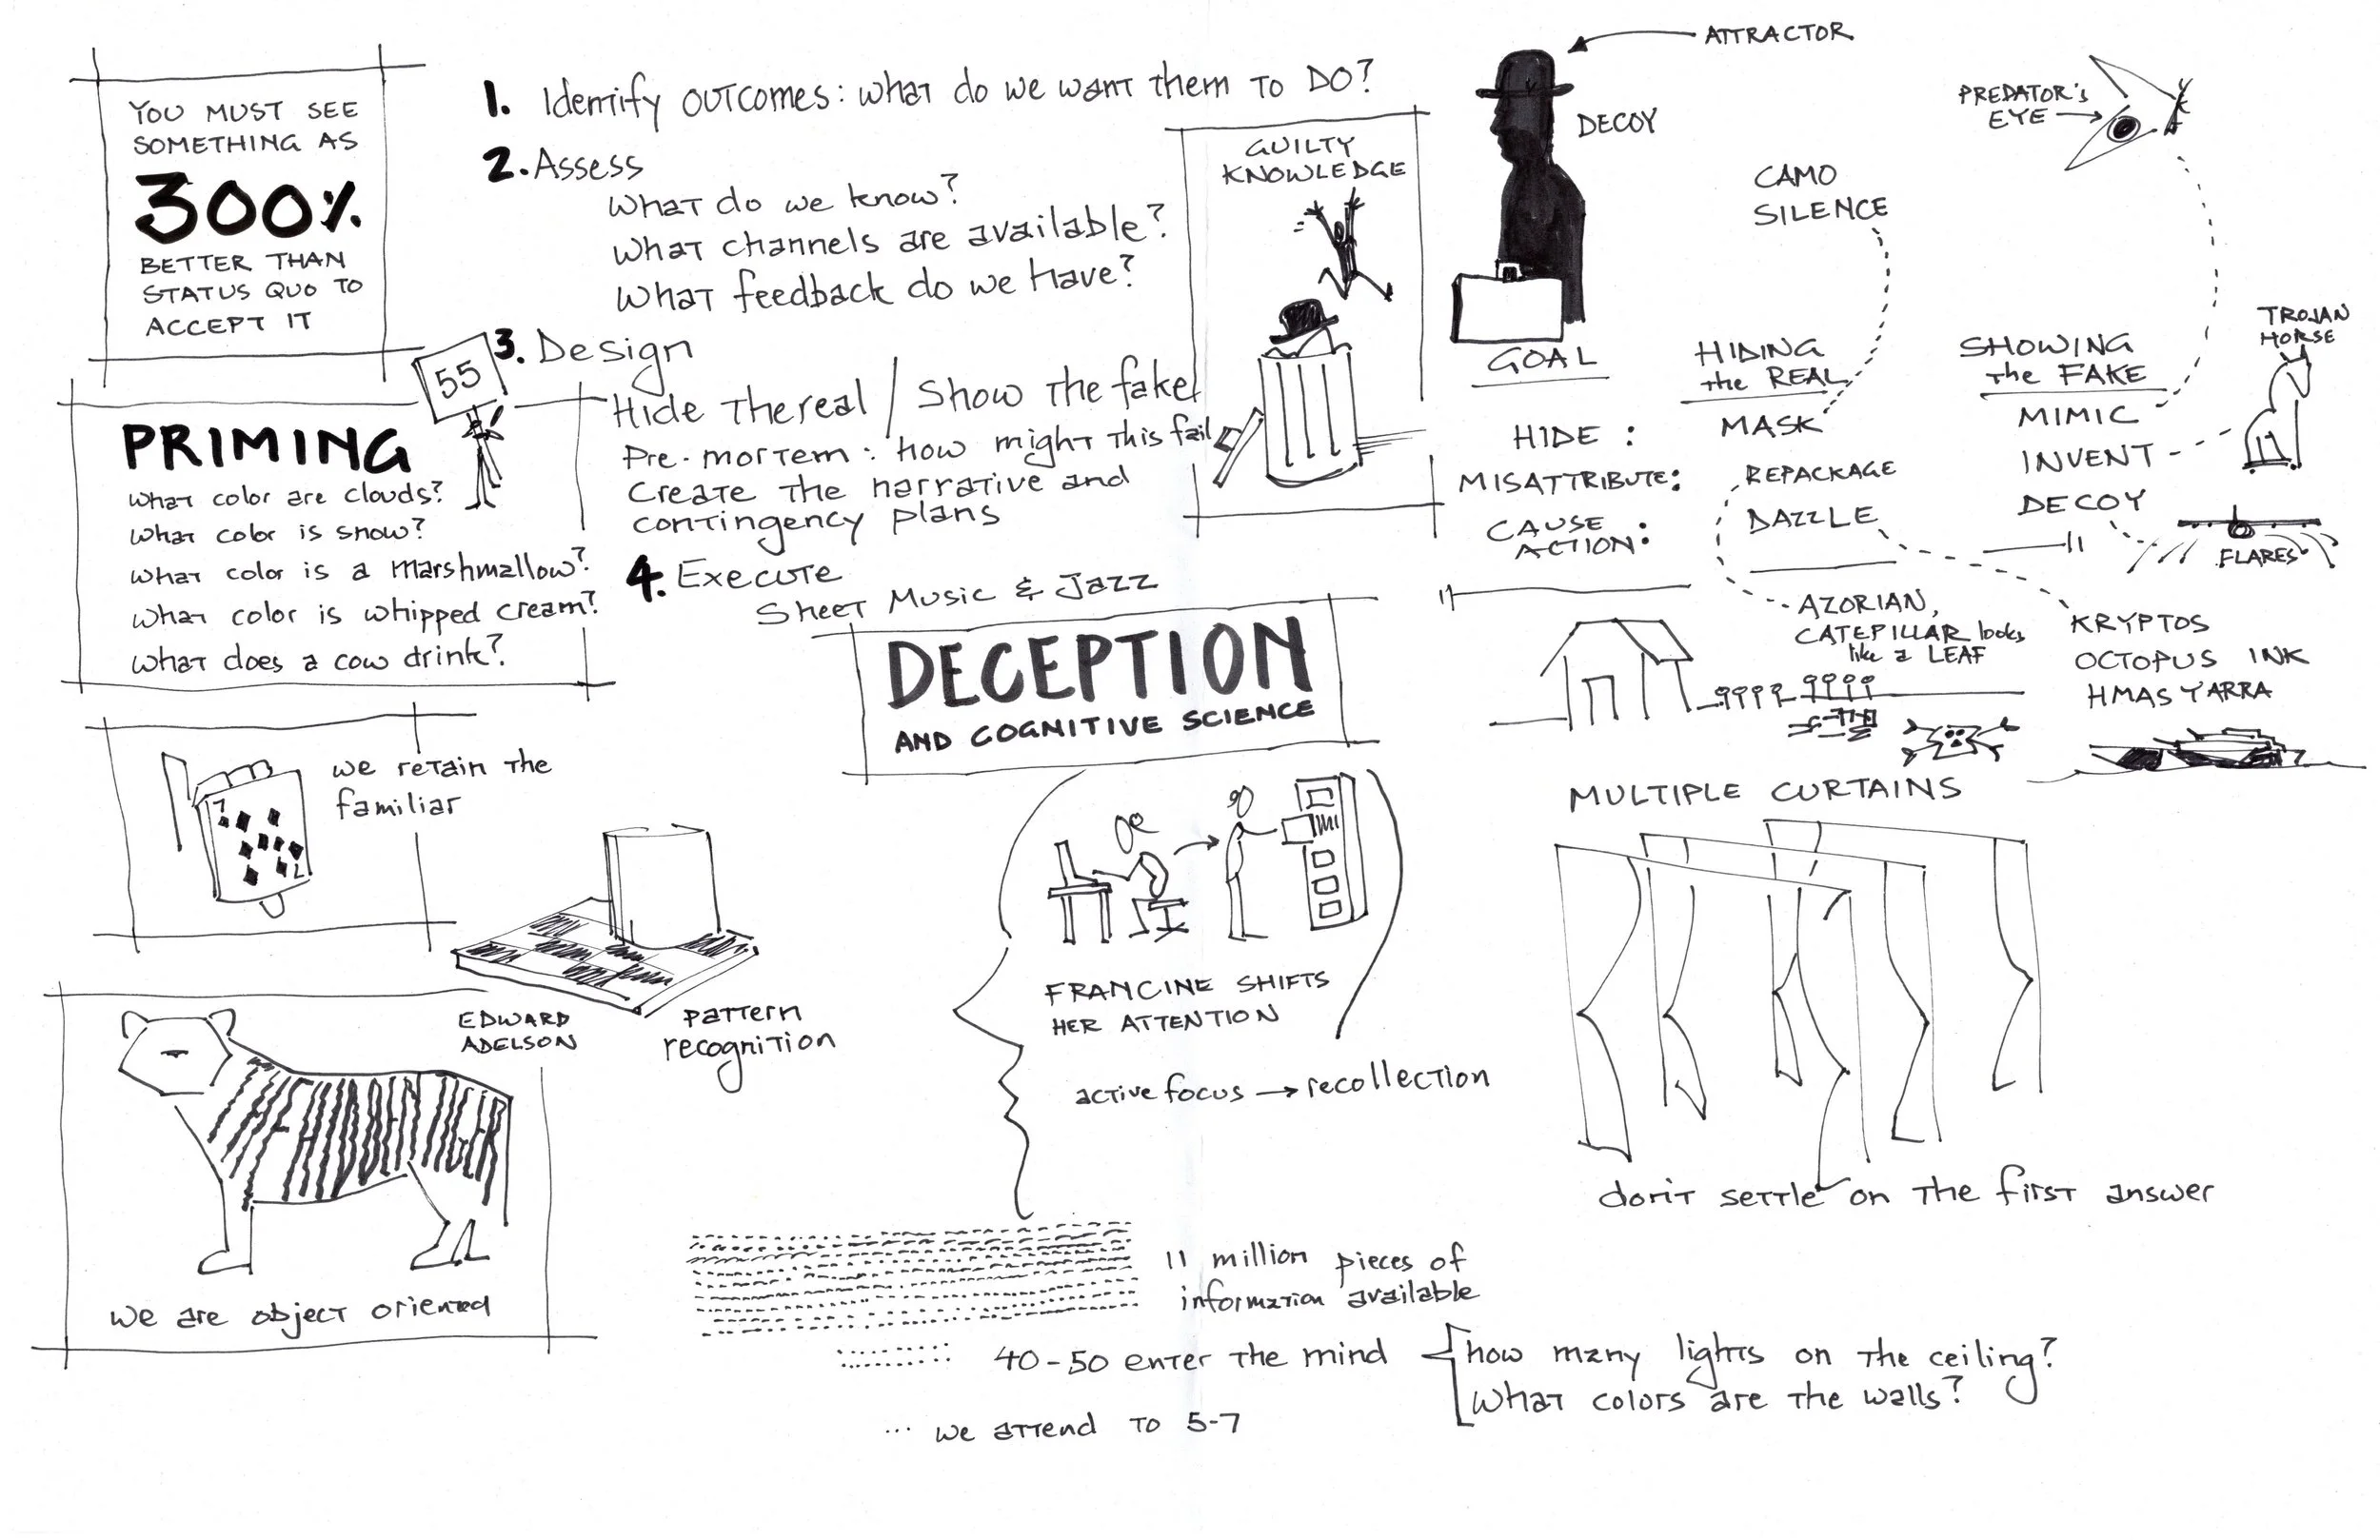 YOU MUST SEE
SOMETHING AS
300%
BETTER THAN
STATUS QUO TO
ACCEPT IT
1. Identify outcomes: what do we want them to DO?
2. Assess
What do we know?
What channels are available?
What feedback do we have?
3. Design
Hide the real / Show the fake
Pre-mortem: how might this fail
Create the narrative and
contingency plans
4. Execute
Sheet Music & Jazz
55
PRIMING
What color are clouds?
What color is snow?
What color is a marshmallow?
What color is whipped cream?
What does a cow drink?
GUILTY
KNOWLEDGE
ATTRACTOR
DECOY
PREDATOR'S
EYE
CAMO
SILENCE
TROJAN
HORSE
GOAL
HIDE :
MISATTRIBUTE:
CAUSE
ACTION:
HIDING
the REAL
MASK
REPACKAGE
DAZZLE
SHOWING
the FAKE
MIMIC
INVENT
DECOY
FLARES
AZORIAN,
CATEPILLAR looks
like a LEAF
KRYPTOS
OCTOPUS INK
HMAS YARRA
DECEPTION
AND COGNITIVE SCIENCE
we retain the
familiar
7
7
EDWARD
ADELSON
pattern
recognition
THE HIDDEN TIGER
we are object oriented
FRANCINE SHIFTS
HER ATTENTION
active focus → recollection
MULTIPLE CURTAINS
don't settle on the first answer
11 million pieces of
information available
40-50 enter the mind
how many lights on the ceiling?
What colors are the walls?
... we attend to 5-7